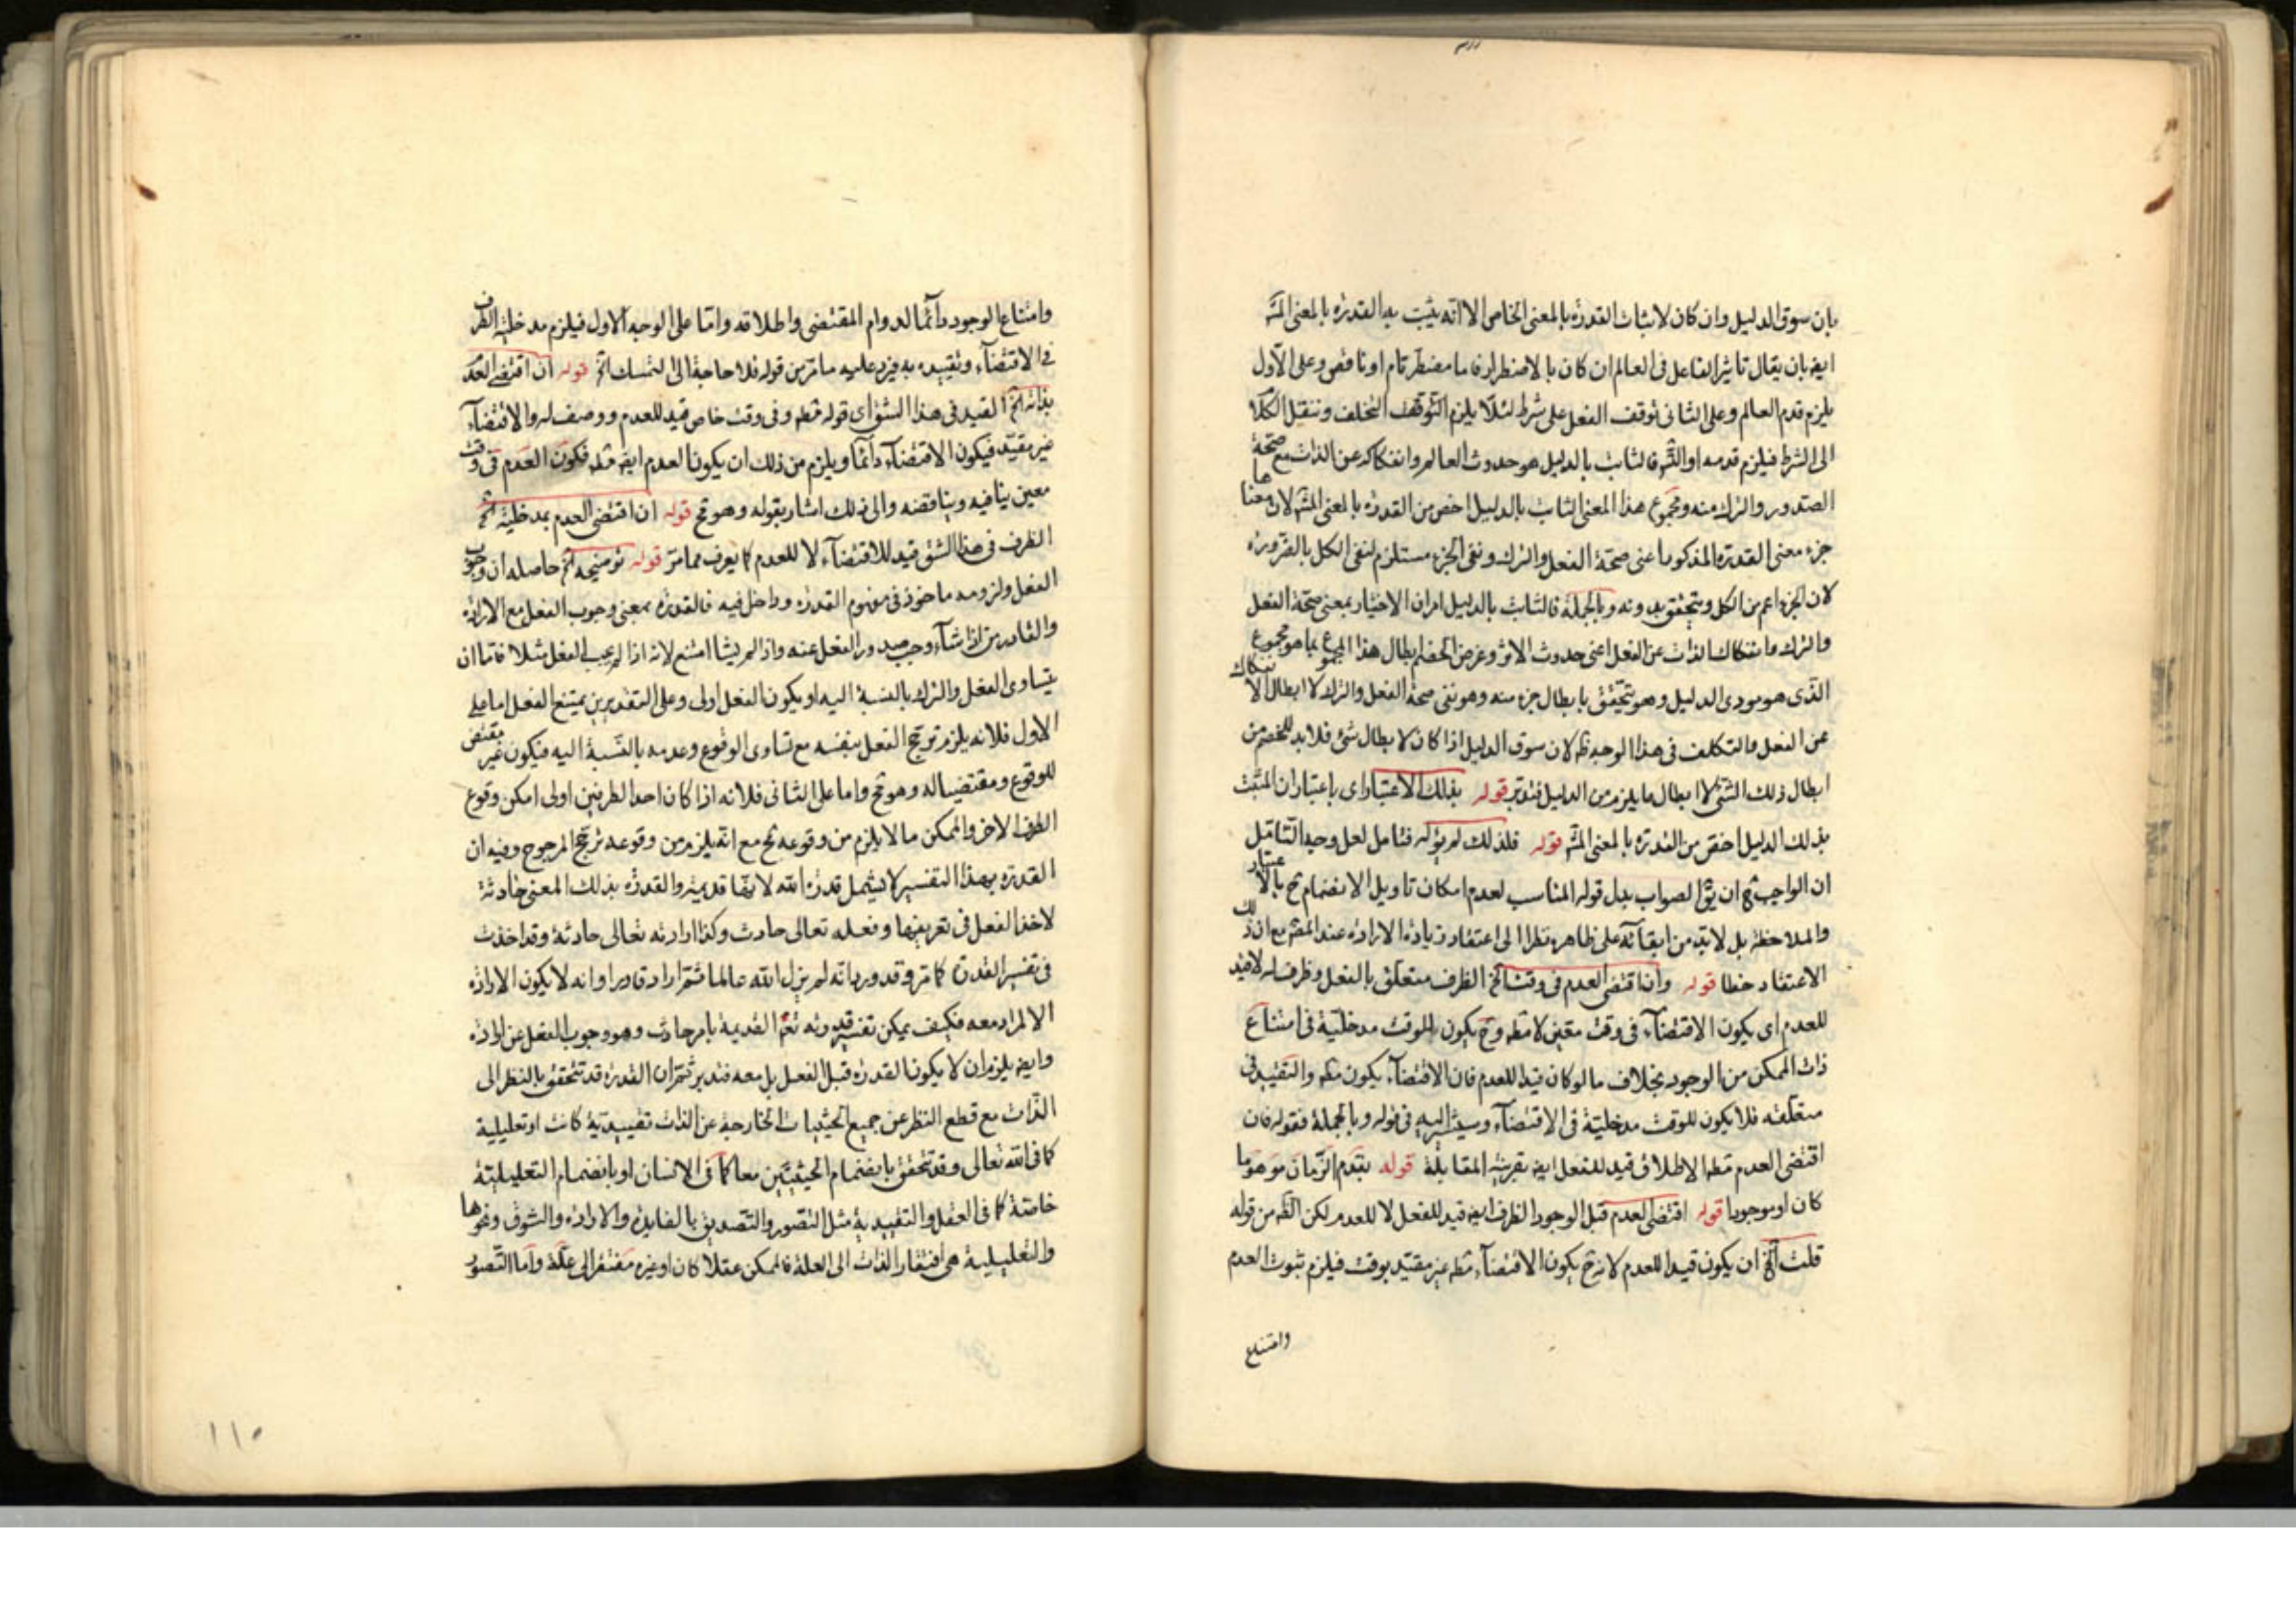 بان سوق الدليل وان كان لاثبات القدرة بالمعنى الخاص الا انه يثبت به القدرة بالمعنى المشه
ايضه بان يقال تاثير الفاعل فى العالم ان كان بالاضطرار فاما مضطر تام او ناقص وعلى الاول
يلزم قدم العالم وعلى الثانى توقف الفعل على شرط لئلا يلزم التوقف التخلف وننقل الكلا
الى الشرط فيلزم قدمه او التس فالثابت بالدليل هو حدوث العالم وانفكاكه عن الذات مع صحة
الصدور والترك منه ومجموع هذا المعنى الثابت بالدليل اخص من القدرة بالمعنى المشه لان معناها
جزء معنى القدرة المذكور اعنى صحة الفعل والترك ونفى الجزء مستلزم لنفى الكل بالضرورة
لان الجزء اعم من الكل ويتحقق بدونه وبالجملة فالثابت بالدليل امران الاختيار بمعنى صحة الفعل
والترك وانفكاك الذات عن الفعل اعنى حدوث الاثر وغرض الخصم ابطال هذا المجموع بما هو مجموع
الذى هو مودى الدليل وهو يتحقق بابطال جزء منه وهو نفى صحة الفعل والترك لا ابطال الانفكاك
عن الفعل والتكلف فى هذا الوجه ظه لان سوق الدليل اذا كان لابطال شئ فلابد للخصم من
ابطال ذلك الشئ لا ابطال ما يلزم من الدليل فتدبر قوله بذلك الاعتبار اى باعتبار ان المثبت
بذلك الدليل اخص من القدرة بالمعنى المشه قوله فلذلك لم يؤله فتامل لعل وجه التامل
ان الواجب ح ان يق الصواب بدل قوله المناسب لعدم امكان تاويل الانضمام ح بالاعتبار
والملاحظة بل لابد من ابقائه على ظاهره نظرا الى اعتقاد زيادة الارادة عند المقه مع ان ذلك
الاعتقاد خطا قوله وان اقتضى العدم فى وقت الخ الظرف متعلق بالفعل وظرف له لا قيد
للعدم اى يكون الاقتضاء فى وقت معين لا مطه وح يكون للوقت مدخلية فى امتناع
ذات الممكن من الوجود بخلاف ما لو كان قيدا للعدم فان الاقتضاء يكون مطه والتقييد فى
متعلقه فلا يكون للوقت مدخلية فى الاقتضاء وسيشير اليه فى قوله وبالجملة فقوله فان
اقتضى العدم مطه الاطلاق قيد للفعل ايضه بقرينة المقابلة قوله بتقدم الزمان موهوما
كان او موجودا قوله اقتضى العدم قبل الوجود الظرف ايضه قيد للفعل لا للعدم لكن الظه من قوله
قلت الخ ان يكون قيدا للعدم لانه ح يكون الاقتضاء مطه غير مقيد بوقت فيلزم ثبوت العدم
وامتناع
وامتناع الوجود دائما لدوام المقتضى واطلاقه واما على الوجه الاول فيلزم مدخلية الظرف
فى الاقتضاء وتقييده به فيرد عليه ما مر من قوله فلا حاجة الى التمسك الخ قوله ان اقتضى العدم
بذاته الخ القيد فى هذا الشق اى قوله مطه وفى وقت خاص قيد للعدم ووصف له والاقتضاء
غير مقيد فيكون الاقتضاء دائما ويلزم من ذلك ان يكون العدم ايضه مثله فكون العدم فى وقت
معين ينافيه ويناقضه والى ذلك اشار بقوله وهو مح قوله ان اقتضى العدم بمدخلية الخ
الظرف فى هذا الشق قيد للاقتضاء لا للعدم كما يعرف مما مر قوله توضيحه الخ حاصله ان وجوب
الفعل ولزومه ماخوذ فى مفهوم القدرة وداخل فيه فالقدرة بمعنى وجوب الفعل مع الارادة
والقادر من اذا شاء وجب صدور الفعل عنه واذا لم يشا امتنع لانه اذا لم يجب الفعل مثلا فاما ان
يتساوى الفعل والترك بالنسبة اليه او يكون الفعل اولى وعلى التقديرين يمتنع الفعل اما على
الاول فلانه يلزم ترجح الفعل بنفسه مع تساوى الوقوع وعدمه بالنسبة اليه فيكون غير مقتض
للوقوع ومقتضيا له وهو مح واما على الثانى فلانه اذا كان احد الطرفين اولى امكن وقوع
الطرف الاخر والممكن ما لا يلزم من وقوعه مح مع انه يلزم من وقوعه ترجح المرجوح وفيه ان
القدرة بهذا التفسير لا يشمل قدرة الله لانها قديمة والقدرة بذلك المعنى حادثة
لاخذ الفعل فى تعريفها وفعله تعالى حادث وكذا ارادته تعالى حادثة وقد اخذت
فى تفسير القدرة كما مر وقد ورد انه لم يزل الله عالما ثم اراد قادرا وانه لا يكون الارادة
الا لمراد معه فكيف يمكن تفسير قدرته تعه القديمة بامر حادث وهو وجوب الفعل عن ارادة
وايضه يلزم ان لا يكون القدرة قبل الفعل بل معه فتدبر ثم ان القدرة قد تتحقق بالنظر الى
الذات مع قطع النظر عن جميع الحيثيات الخارجة عن الذات تقييدية كانت او تعليلية
كما فى الله تعالى وقد تتحقق بانضمام الحيثيتين معا كما فى الانسان او بانضمام التعليلية
خاصة كما فى العقل والتقييدية مثل التصور والتصديق بالفايدة والارادة والشوق ونحوها
والتعليلية هى افتقار الذات الى العلة فالممكن عقلا كان او غيره مفتقر الى علة واما التصور
١١٠